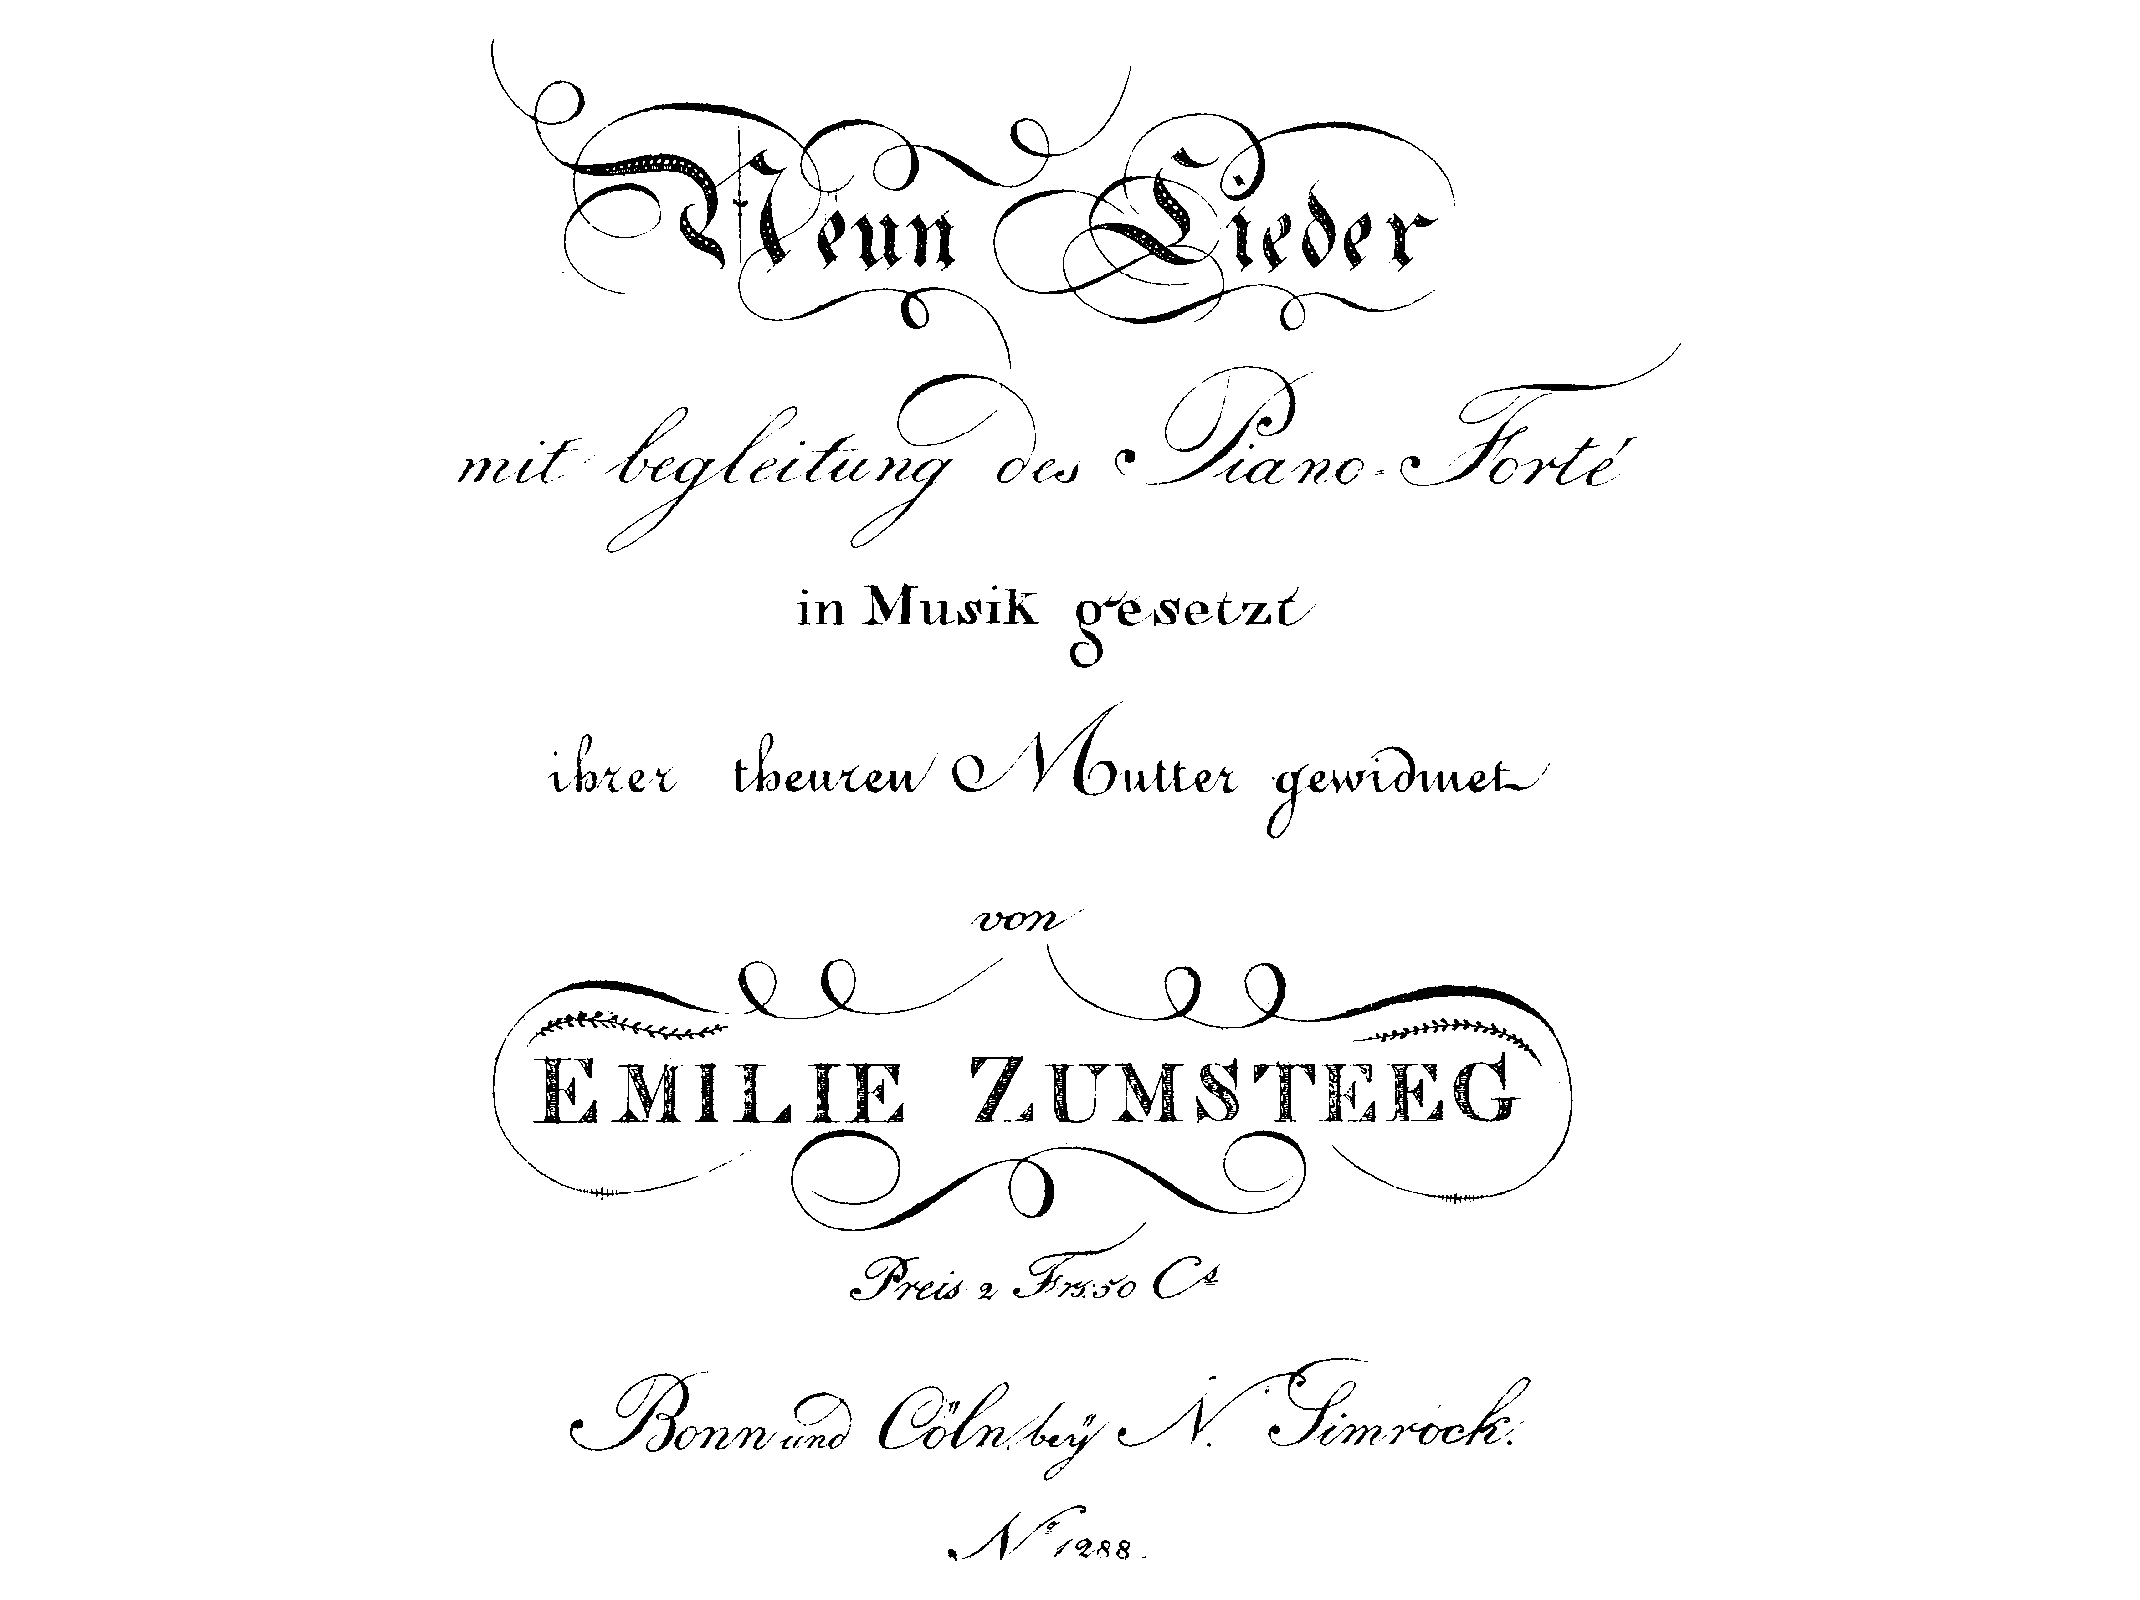 Neun Lieder
mit begleitung des Piano-Forté
in Musik gesetzt
ihrer theuren Mutter gewidmet
von
EMILIE ZUMSTEEG
Preis 2 Frs. 50 Cs
Bonn und Cöln bey N. Simrock.
No 1288.